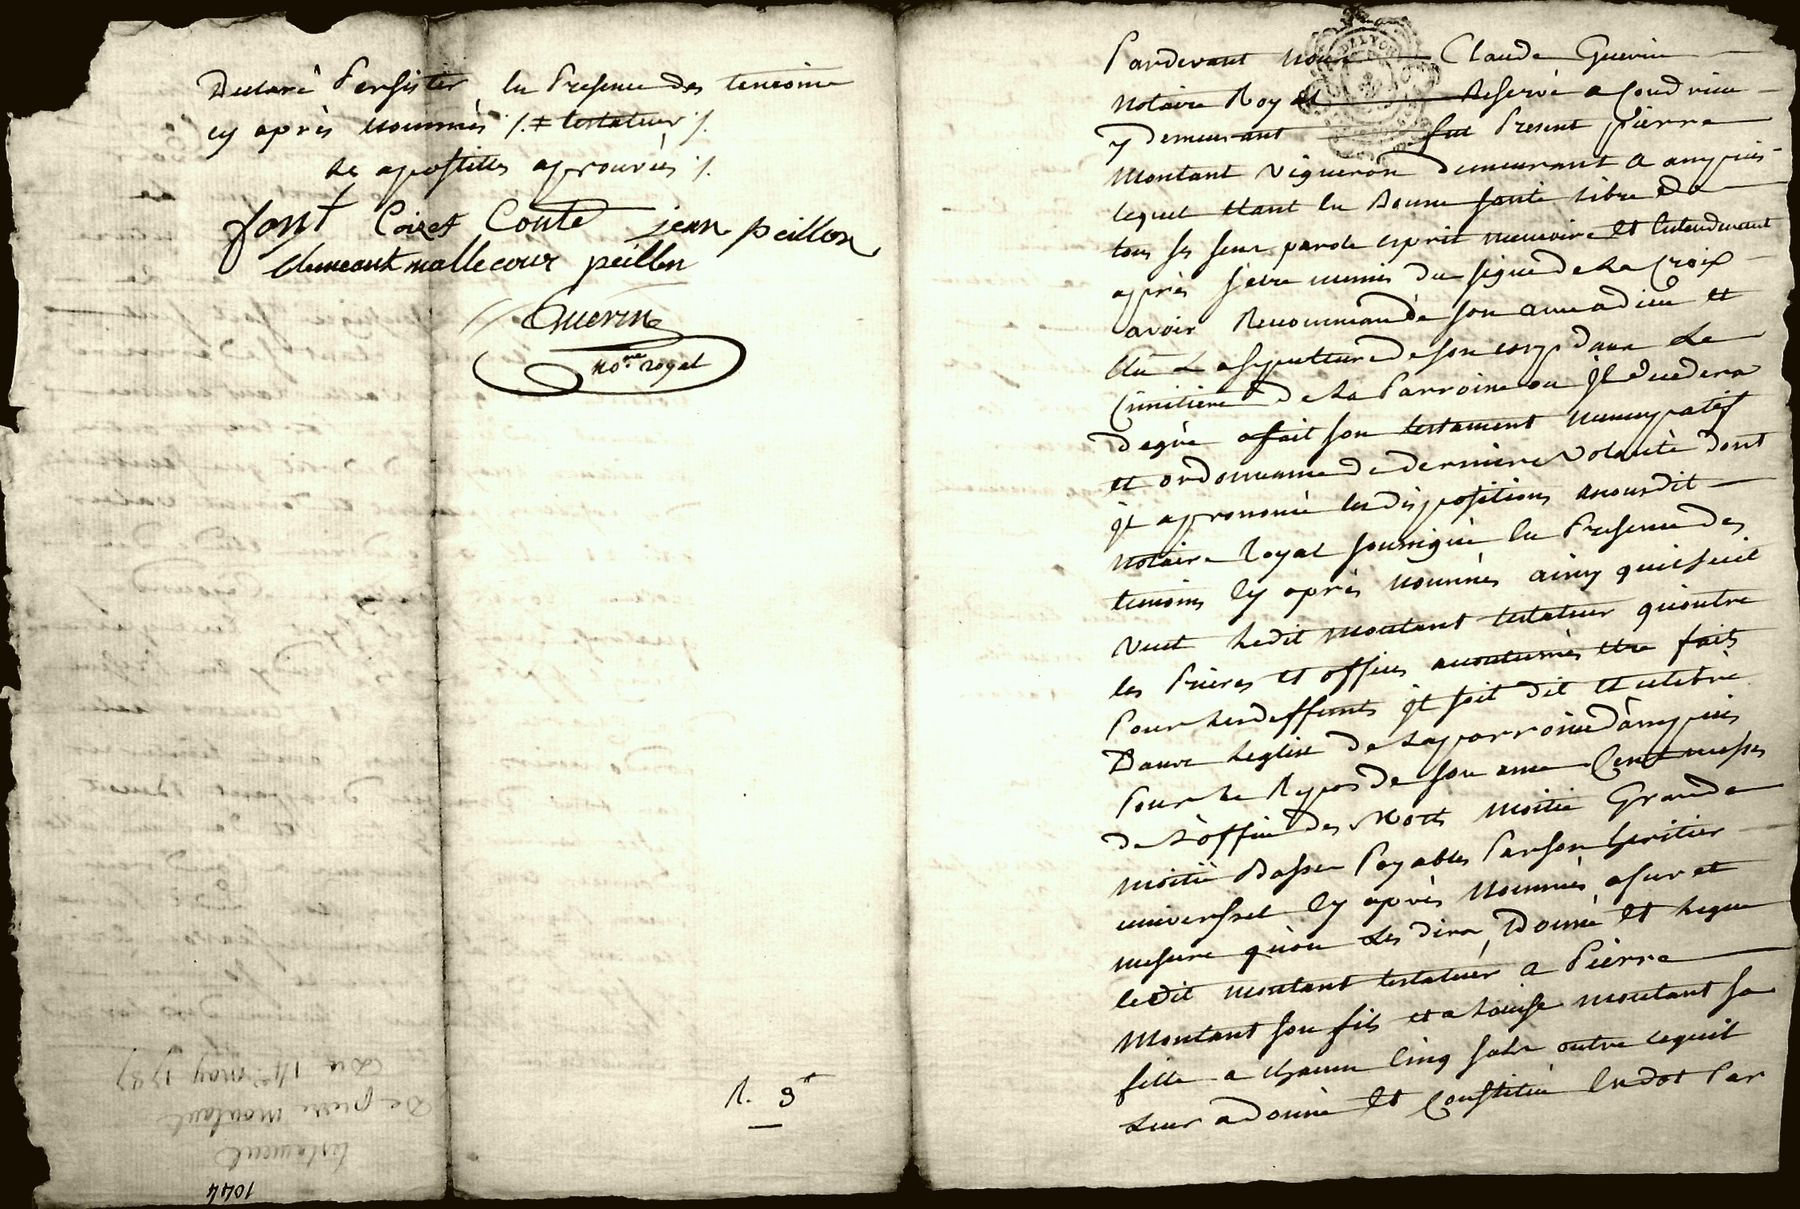 Declaré Persister En Presence des temoins
cy après nommés /. ‡ testateur /.
les apostilles aprouvées /.
font Coizet Conte jean peillon
Clemeaut mallecour peillon
Guerin
no.re royal
R. 9
Du 14e may 1787
De pierre montant
testament
1044
DE LYON
Pardevant Nous Claude Guerin
Notaire Royal Reservé a Condrieu
y demeurant fut Present pierre
Montant vigneron demeurant a ampuis
lequel Etant En Bonne santé libre de
tous ses sens parole esprit memoire et Entendement
après s'etre munis du signe de la Croix
avoir Recommandé son ame a dieu et
Elu La sepulture de son corps dans Le
Cimitiere de la Parroisse ou jl decedera
degré a fait son testament nuncupatif
et ordonnance de derniere volonté dont
jl a prononcé les dispositions a nousdit
Notaire Royal soussigné En Presence des
temoins Cy après nommés ainsy quil suit
Veut Ledit montant testateur qu'outre
les Prieres et offices accoutumés etre faits
Pour Les deffunts jl soit dit et celebré
Dans Leglise de la parroisse d'ampuis
Pour Le Repos de son ame Cent messes
de L'office des Morts moitié Grande
moitié Basse Payables Par son heritier
universsel Cy après Nommés a fur et
mesure qu'on Les dira, Donne et Legue
ledit montant testateur a Pierre
Montant son fils et a Louise montant sa
fille a chacun Cinq sols outre cequil
Leur a donné Et Constitué En dot Par